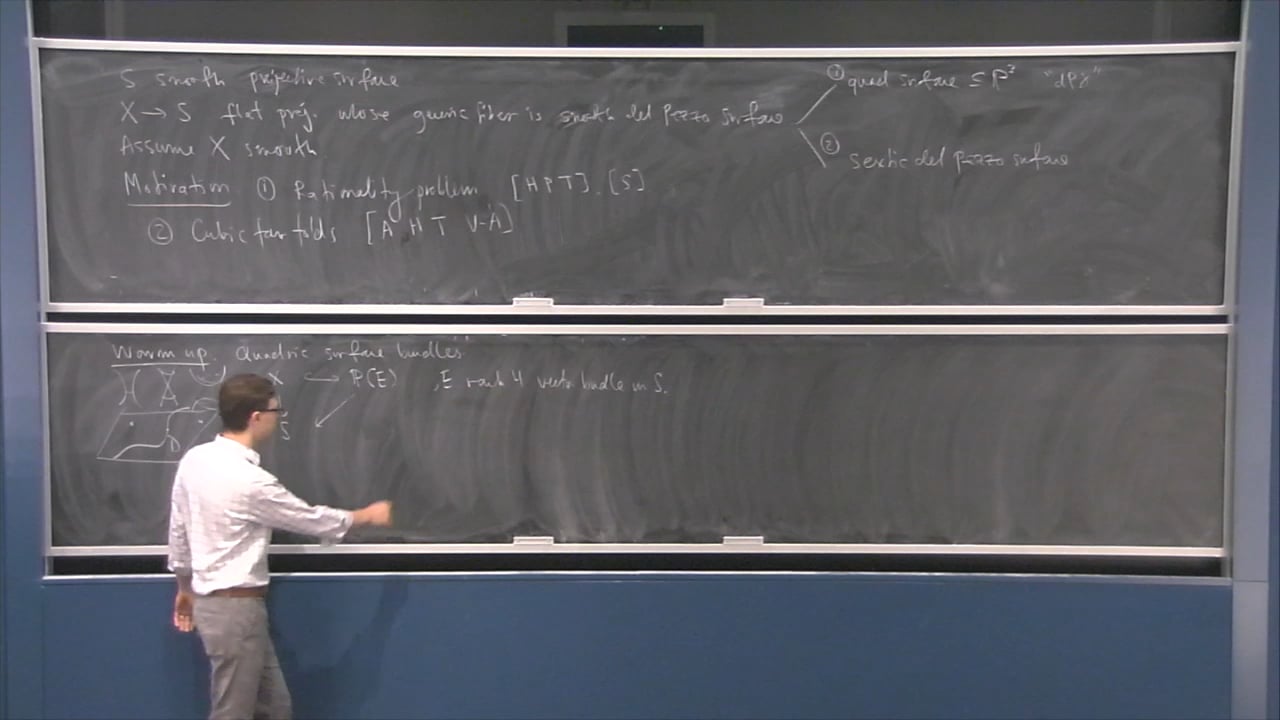 S smooth projective surface
X → S flat proj. whose generic fiber is smooth del Pezzo surface
① quad surface ⊆ P³ "dP8"
② sextic del Pezzo surface
Assume X smooth
Motivation ① Rationality problem [HPT], [S]
② Cubic fourfolds [A H T V-A]
Warm up. Quadric surface bundles.
X ↪ P(E) , E rank 4 vector bundle on S.
D
S